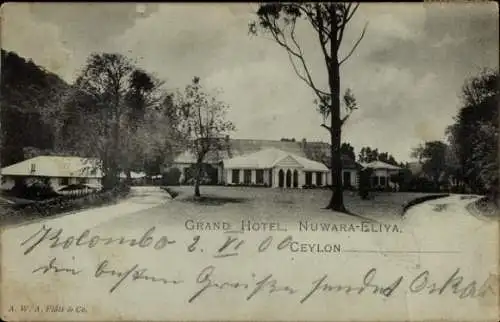 Grand Hotel, Nuwara-Eliya,
Ceylon
Kolombo 2. VI 00
Grüsse sendet Oskar
A. W. A. Plâté & Co.